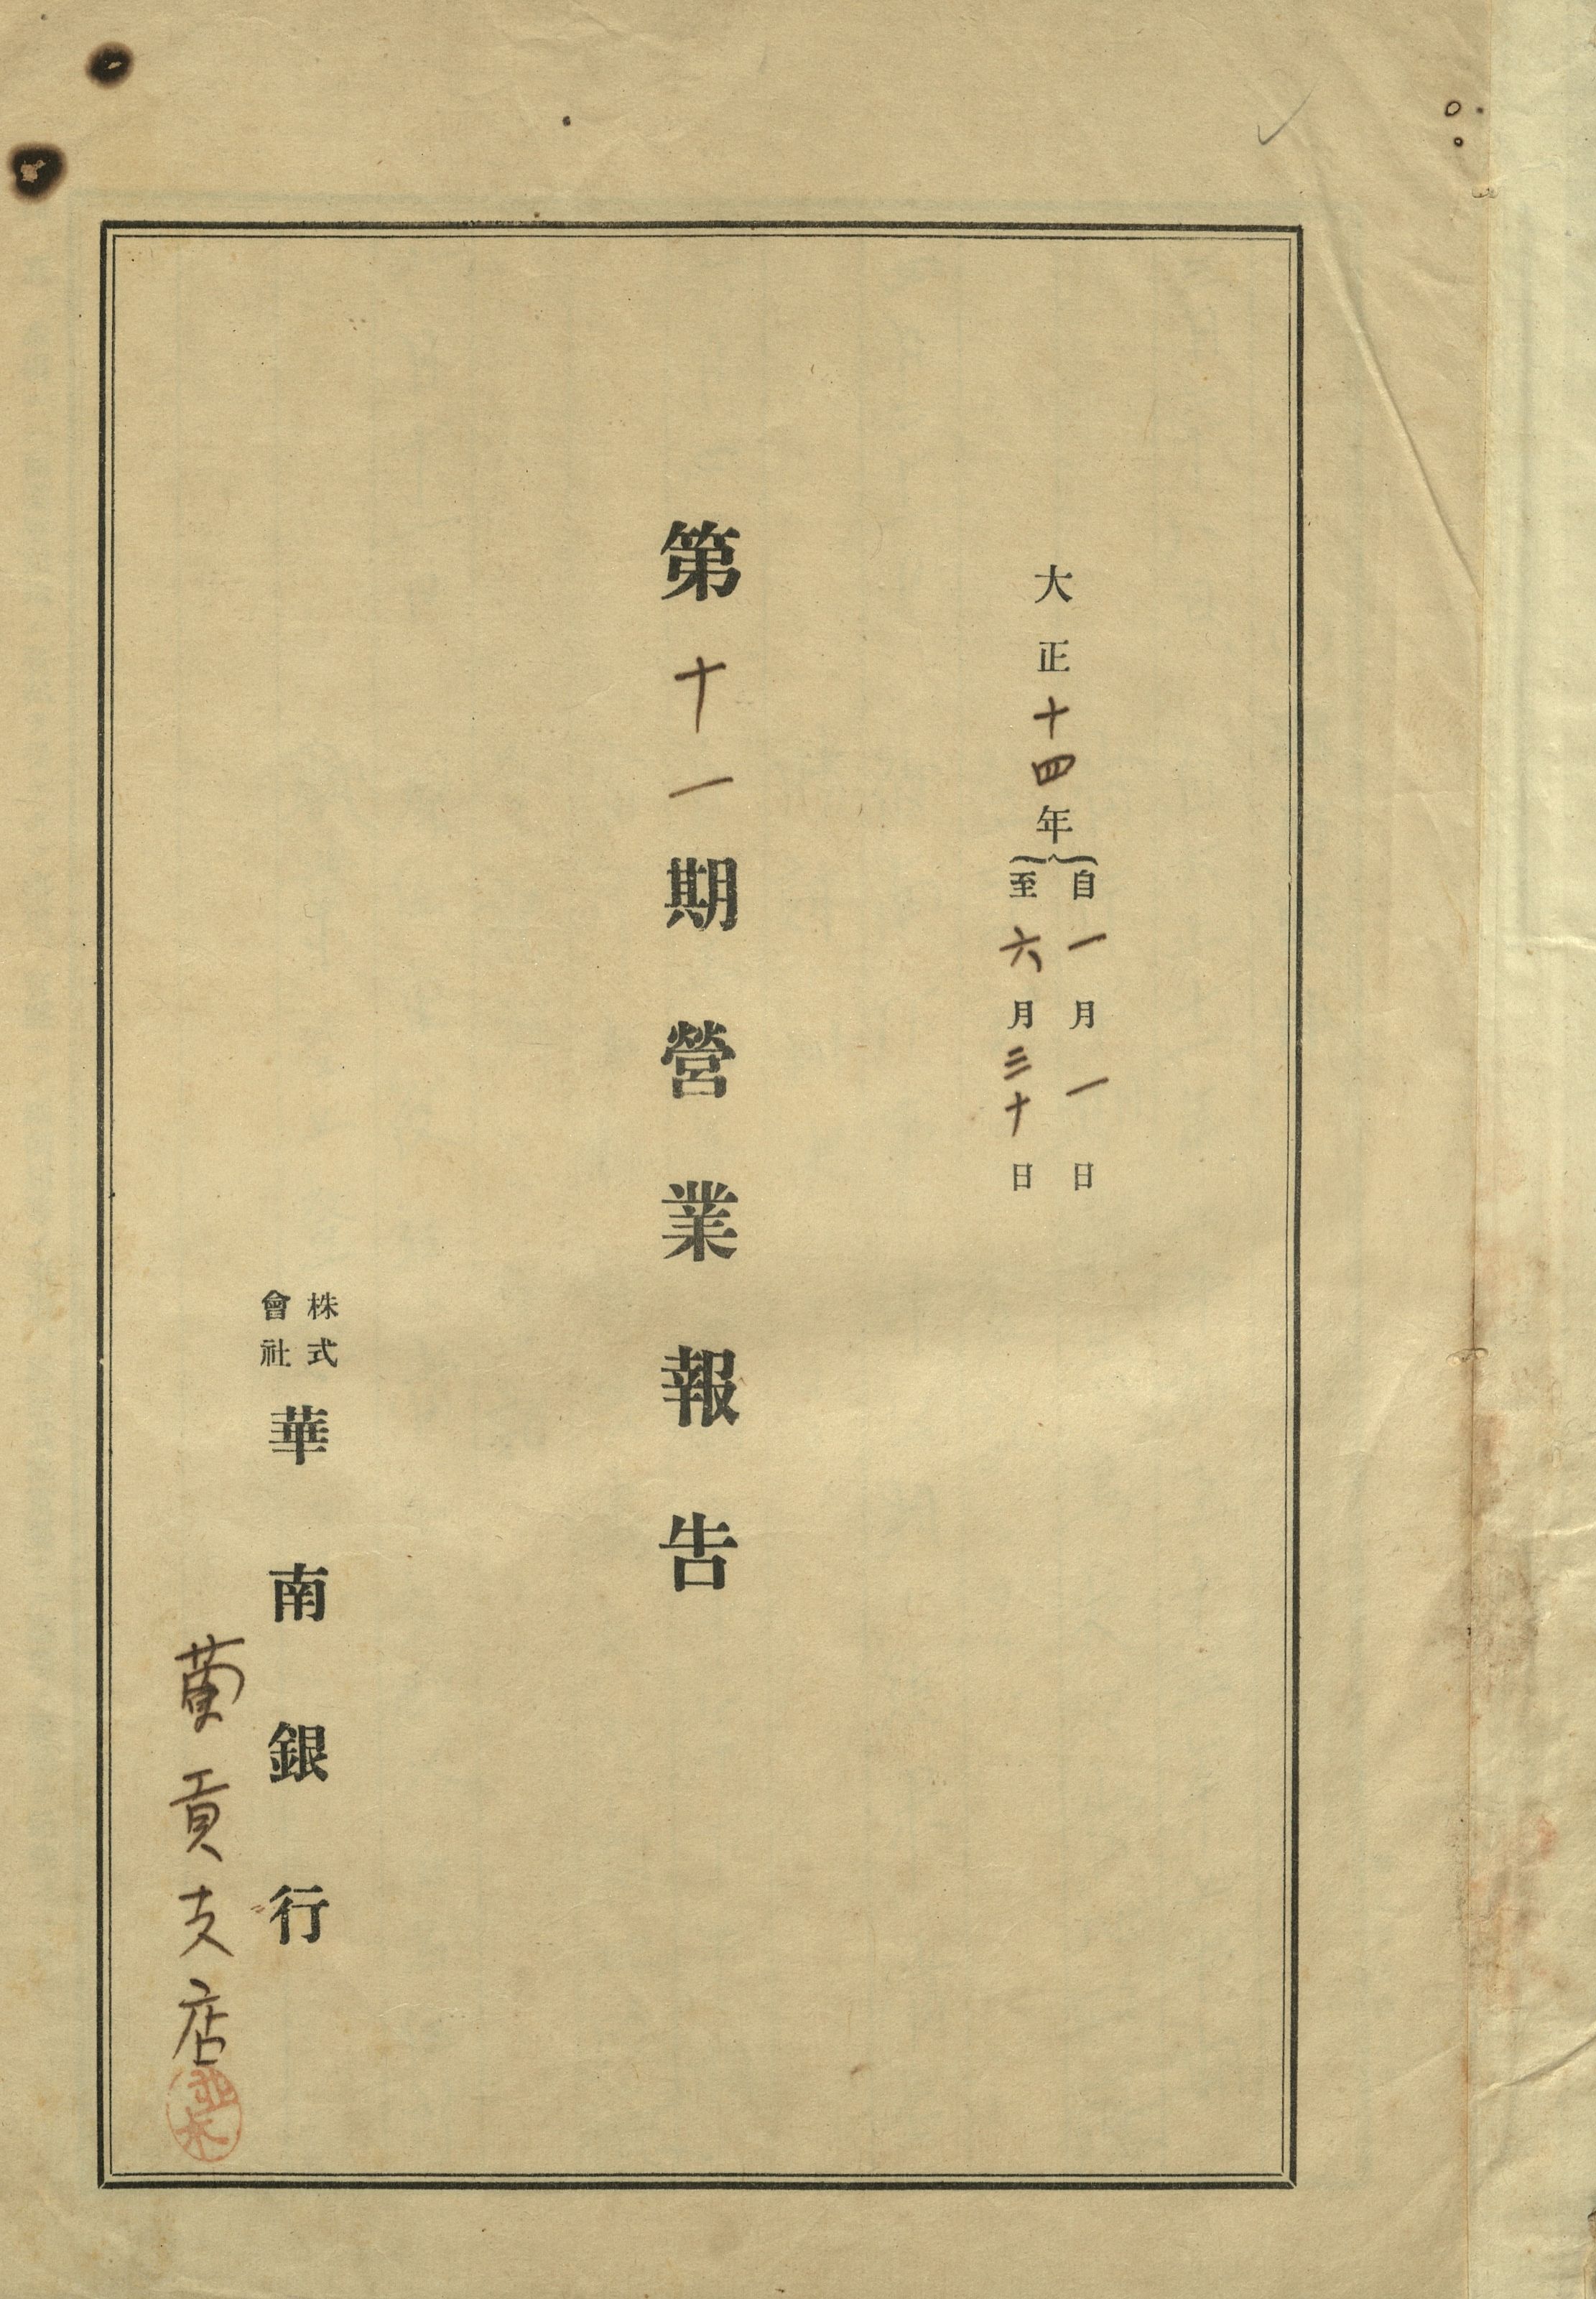 大正十四年
自一月一日
至六月三十日
第十一期營業報告
株式
會社
華南銀行
蘭貢支店
並木